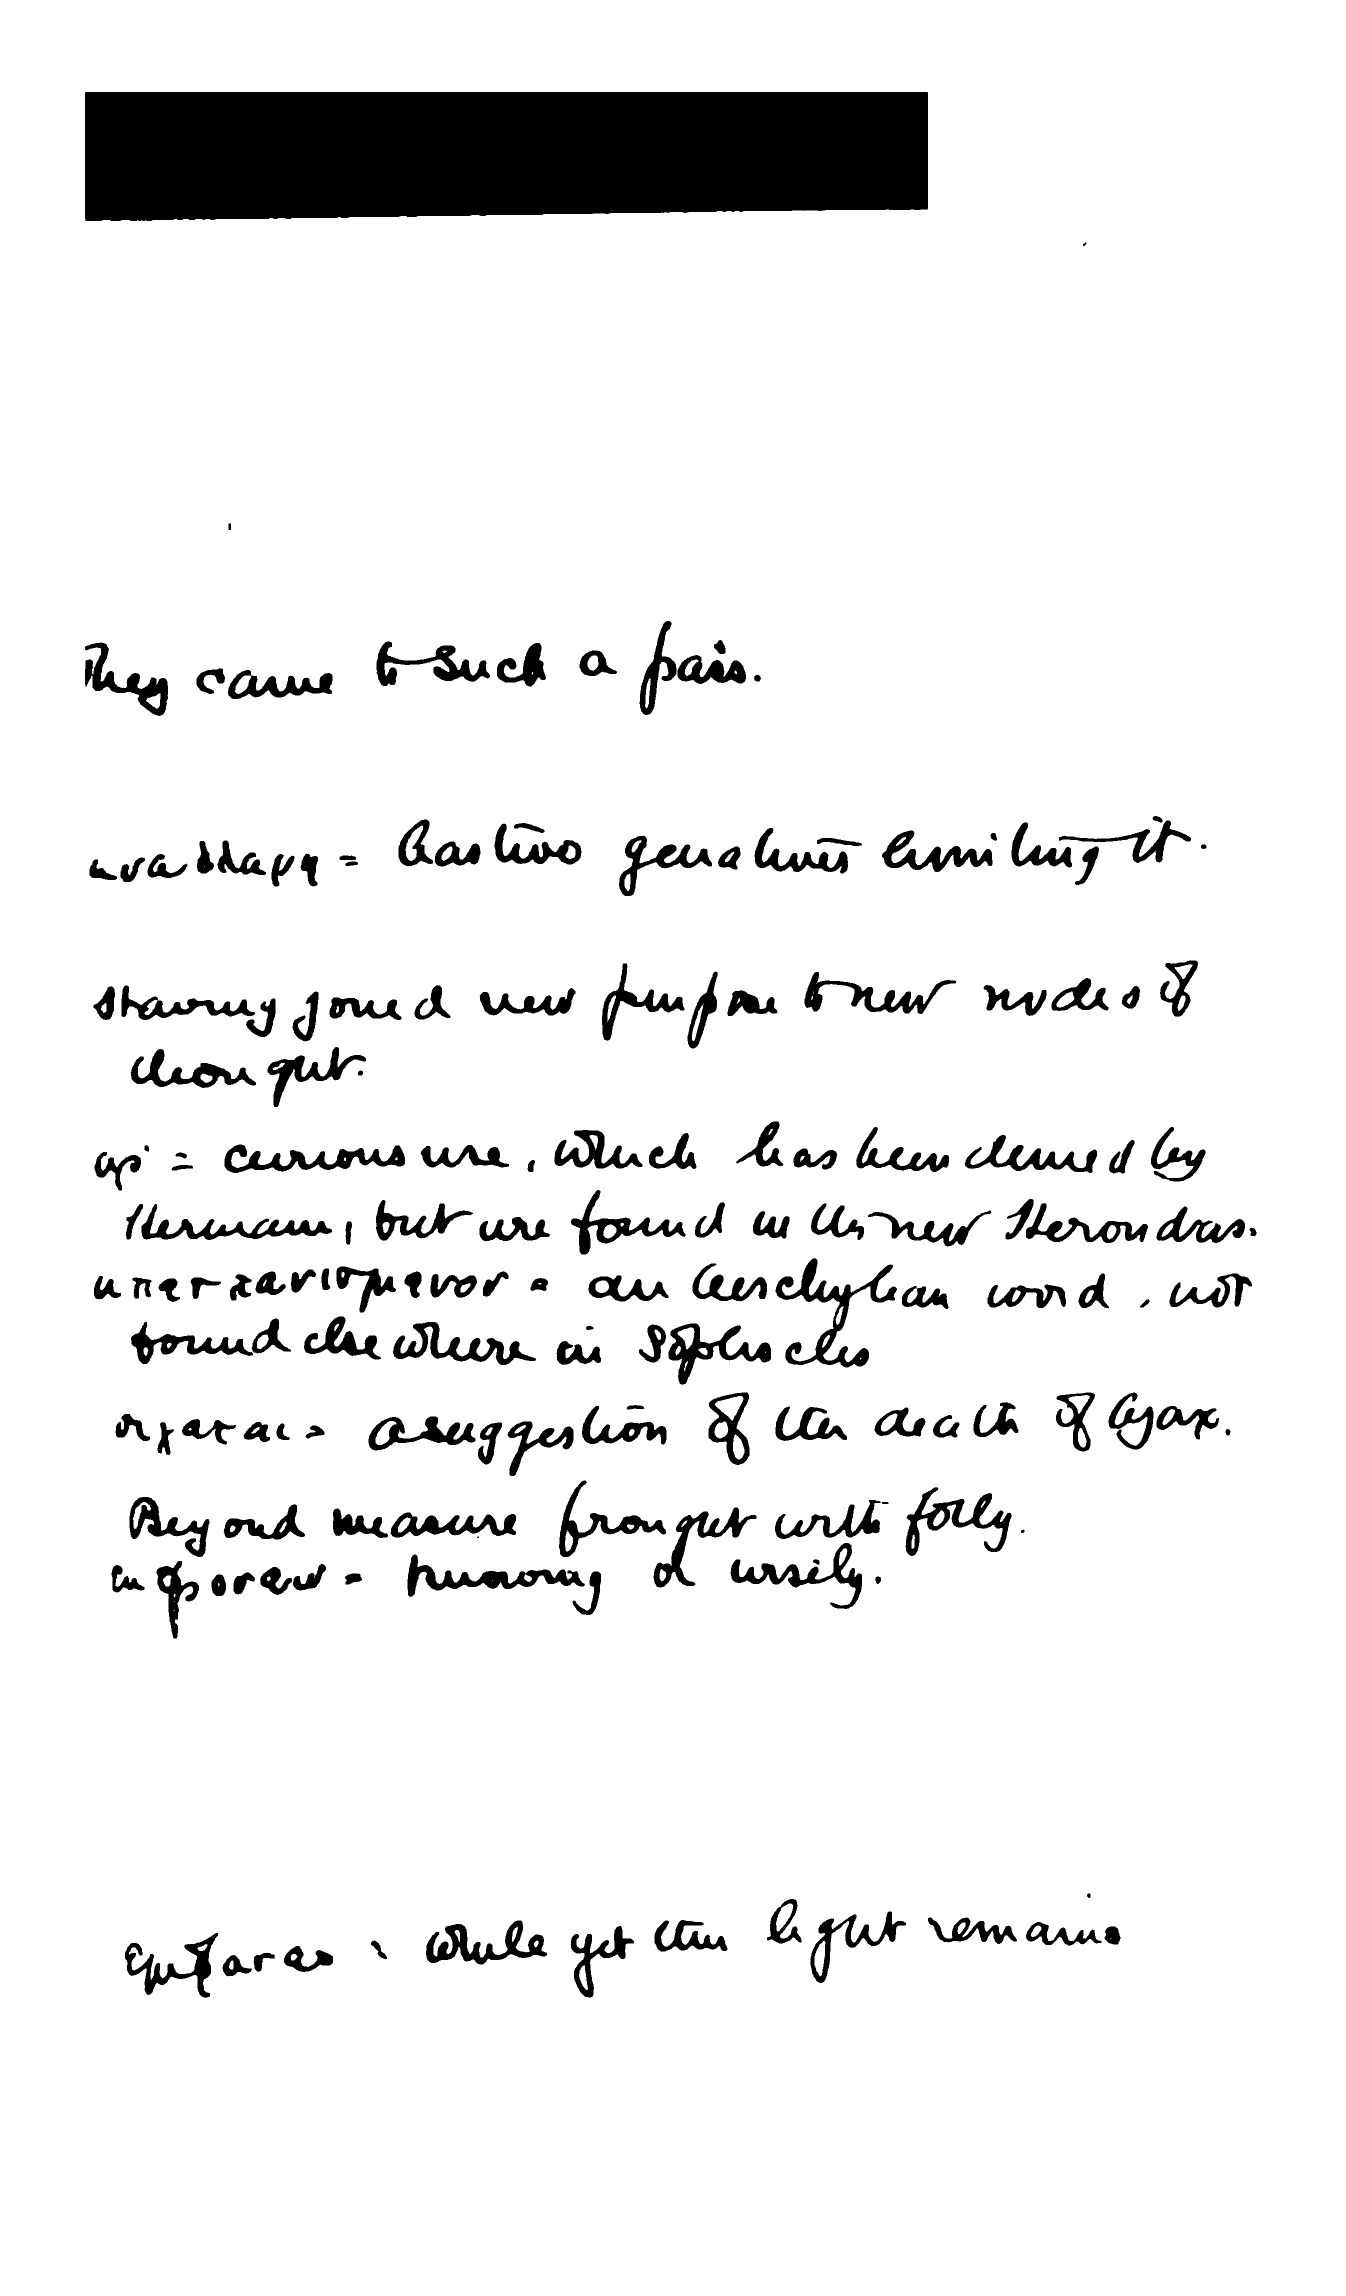 They came to such a pass.
απαλλαγη = has two genatives limiting it.
Having joined new purpose to new modes of
thought.
αρ' = curious use, which has been denied by
Hermann, but use found in the new Herondas.
= an Aeschylean word, not
found elsewhere in Sophocles
οιχεται = a suggestion of the death of Ajax.
Beyond measure fraught with folly.
= knowing of wisely.
= while yet the light remains